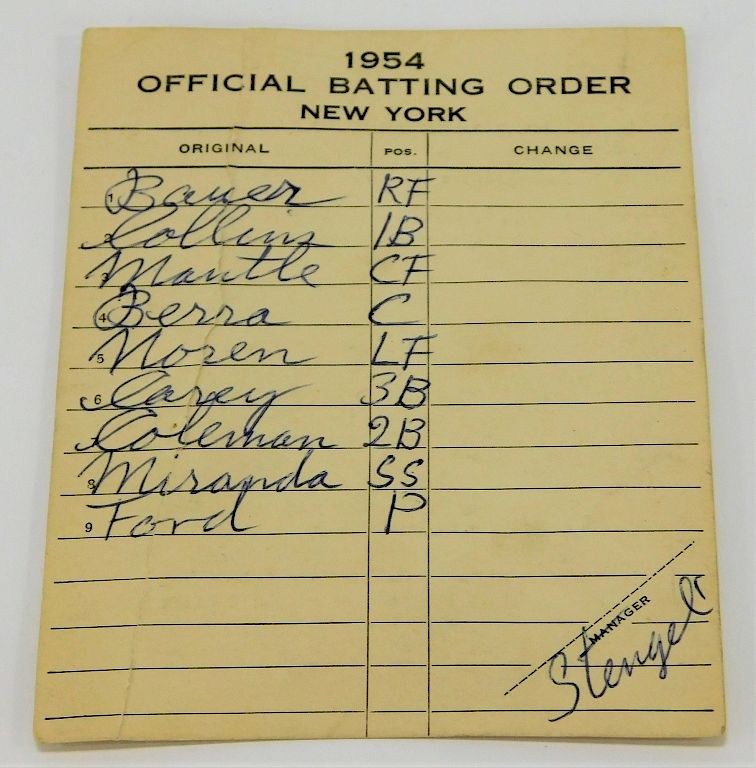 1954
OFFICIAL BATTING ORDER
NEW YORK
ORIGINAL POS. CHANGE
1 Bauer RF
2 Collins 1B
3 Mantle CF
4 Berra C
5 Noren LF
6 Carey 3B
Coleman 2B
8 Miranda SS
9 Ford P
MANAGER
Stengel